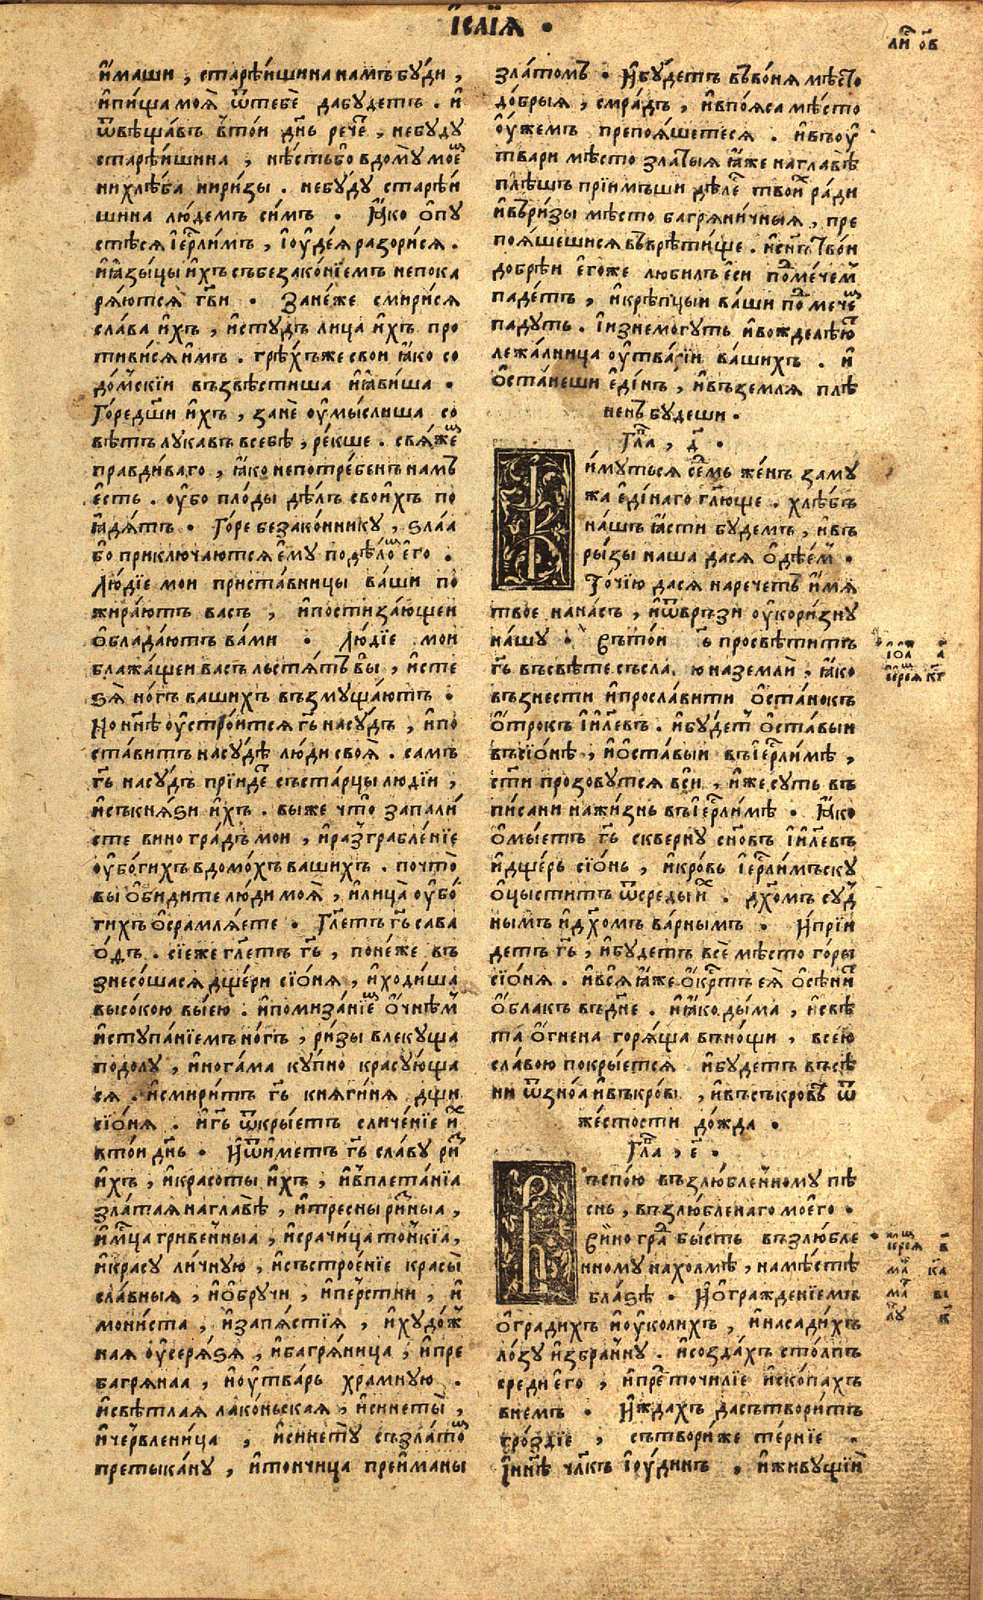 І҆саїꙗ .
имаши , старѣйшина намъ буди ,
и пища моꙗ̀ ѿ тебѐ да будетъ . и
ѿвѣщавъ в той дн҃ь рече̑ , не буду
старѣйшина , нѣсть бо в дому мое
ни хлѣба ни ризы . не буду старѣй
шина людемъ симъ . Ꙗко опу
стѣсѧ іерⷭ҇лимъ , і юдеѧ разорисѧ .
и ꙗзыцы ихъ съ безаконїемъ непока
рѧютсѧ гв҃и . Занеже смирисѧ
слава ихъ , и студъ лица ихъ про
тивисѧ имъ . грѣхъ же свой ꙗко со
домскїи възвѣстиша и ꙗвиша .
Горе дш҃и ихъ , занѐ умыслиша со
вѣтъ лукавъ в себѣ , рекше . свѧжеⷨ
праведиваго , ꙗко непотребенъ намъ
есть . убо плоды дѣлъ своихъ по
ꙗдѧтъ . Горе безаконнику , ѕлаа
бо приключаютсѧ ему по дѣлоⷨ его .
Людїе мои приставницы ваши по
жираютъ васъ , и постизающеи
обладаютъ вами . Людїе мои
блажащеи васъ льстѧтъ вы , и сте
ѕѧ̀ ногъ вашихъ възмущаютъ .
Но нн҃ѣ устроитсѧ гь҃ на судъ , и по
ставитъ на судѣ люди своѧ . самъ
гь҃ на судъ прїидеⷮ съ старцы людїи ,
и съ кнѧѕи ихъ . вы же что запали
сте виноградъ мой , и разграбленїе
убогихъ в домохъ вашихъ . почто
вы обидите люди моѧ̀ , и лица убо
гихъ осрамлѧете . Гл҃етъ гь҃ сава
одъ . сїе же гл҃етъ гь҃ , понеже въ
знесошасѧ дщери сїонѧ , и ходиша
высокою выею . и помизанїеⷨ очнѣмъ
и ступанїемъ ногъ , ризы влекуща
по долу , и ногама купно красующа
сѧ . и смиритъ гь҃ кнѧгинѧ дщи
сїонѧ . и гь҃ ѿкрыетъ сличенїе иⷯ
в той дн҃ь . И ѿиметъ гь҃ славу риⷥ
ихъ , и красоты ихъ , и вплетанїа
златаꙗ на главѣ , и тресны ризныа ,
и мсц҃а гривенныа , и срачица тонкїа ,
и красу личную , и състроенїе красы̀
славныꙗ , и обручи , и перстни , и
мониста , и запѧстїꙗ , и художⷩ
наꙗ усерѧѕѧ , и багрѧница , и пре
багрѧнаа , и утварь храмную .
и свѣтлаꙗ лаконьскаꙗ , и синеты ,
и червленица , и синету съ златоⷨ
претыкану , и тончица преиманы
златомъ . И будетъ въ вонѧ мѣсто
добрыꙗ , смрадъ , и в поꙗса мѣсто
ужемъ препоꙗшетесѧ . и въ у
твари мѣсто златыꙗ ꙗже на главѣ
плѣшъ прїимѣши дѣлъ твоиⷯ ради
и въ ризы мѣсто багрѧничныꙗ , пре
поꙗшешисѧ въ врѣтище . и сн҃ъ твой
добрѣи егоже любилъ еси поⷣ мечемъ
падетъ , и крѣпцыи ваши поⷣ мечеⷨ
падуть . І изнемогуть и вожделѣюⷮ
лежалница утварїи вашихъ . и
останеши единъ , и въ землѧ плѣ
ненъ будеши .
Глⷡ҇а , д҃ .
И имуться семь женъ за му
жа единаго глю҃ще . хлѣбъ
нашъ ꙗсти будемъ , и въ
рызы наша дасѧ одѣемъ .
Точїю дасѧ наречетъ имѧ
твое на насъ , и ѿвръзи укоризну
нашу . Въ той просвѣтитъ
гь҃ въ свѣте съ сла ю на земли , ꙗко
възнести и прославити останокъ
отрокъ і҃илевъ . и будетъ оставый
въ сїонѣ , и оставый въ іерⷭ҇лимѣ ,
ст҃и прозовутсѧ вси , иже суть въ
писани на жизнь въ іерⷭ҇лимѣ . Ꙗко
омыетъ гь҃ скверну сн҃овъ і҃илевъ
и дщерь сїонь , и кровь іерⷭ҇лимъску
оцыститъ ѿ среды иⷯ . дх҃омъ суд
нымъ и дх҃омъ варнымъ . И прїи
детъ гь҃ , и будетъ все мѣсто горы
сїонѧ . и всѧ ꙗже окрⷭ҇тъ еꙗ осѣни
облакъ въ дн҃е . и ꙗко дыма , и свѣ
та огнена горѧща в нощи , всею
славою покрыетсѧ и будетъ въ сѣ
ни ѿ зноꙗ и въ кровѣ , и въ съкровъ ѿ
жестости дождѧ .
Глⷡ҇а , е҃ .
Въспою възлюбленному пѣ
снь , възлюбленаго моего .
Виноградъ бысть възлюбле
нному на холмѣ , на мѣстѣ
блаѕѣ . И огражденїемъ
оградихъ и уколихъ , и насадихъ
лозу избранну . и создахъ столпъ
среди его , и предточилїе ископахъ
в немъ . И ждахъ да сътворитъ
гроздїе , сътвори же тернїе .
І нн҃ѣ чл҃къ іюдинъ , и живущїи